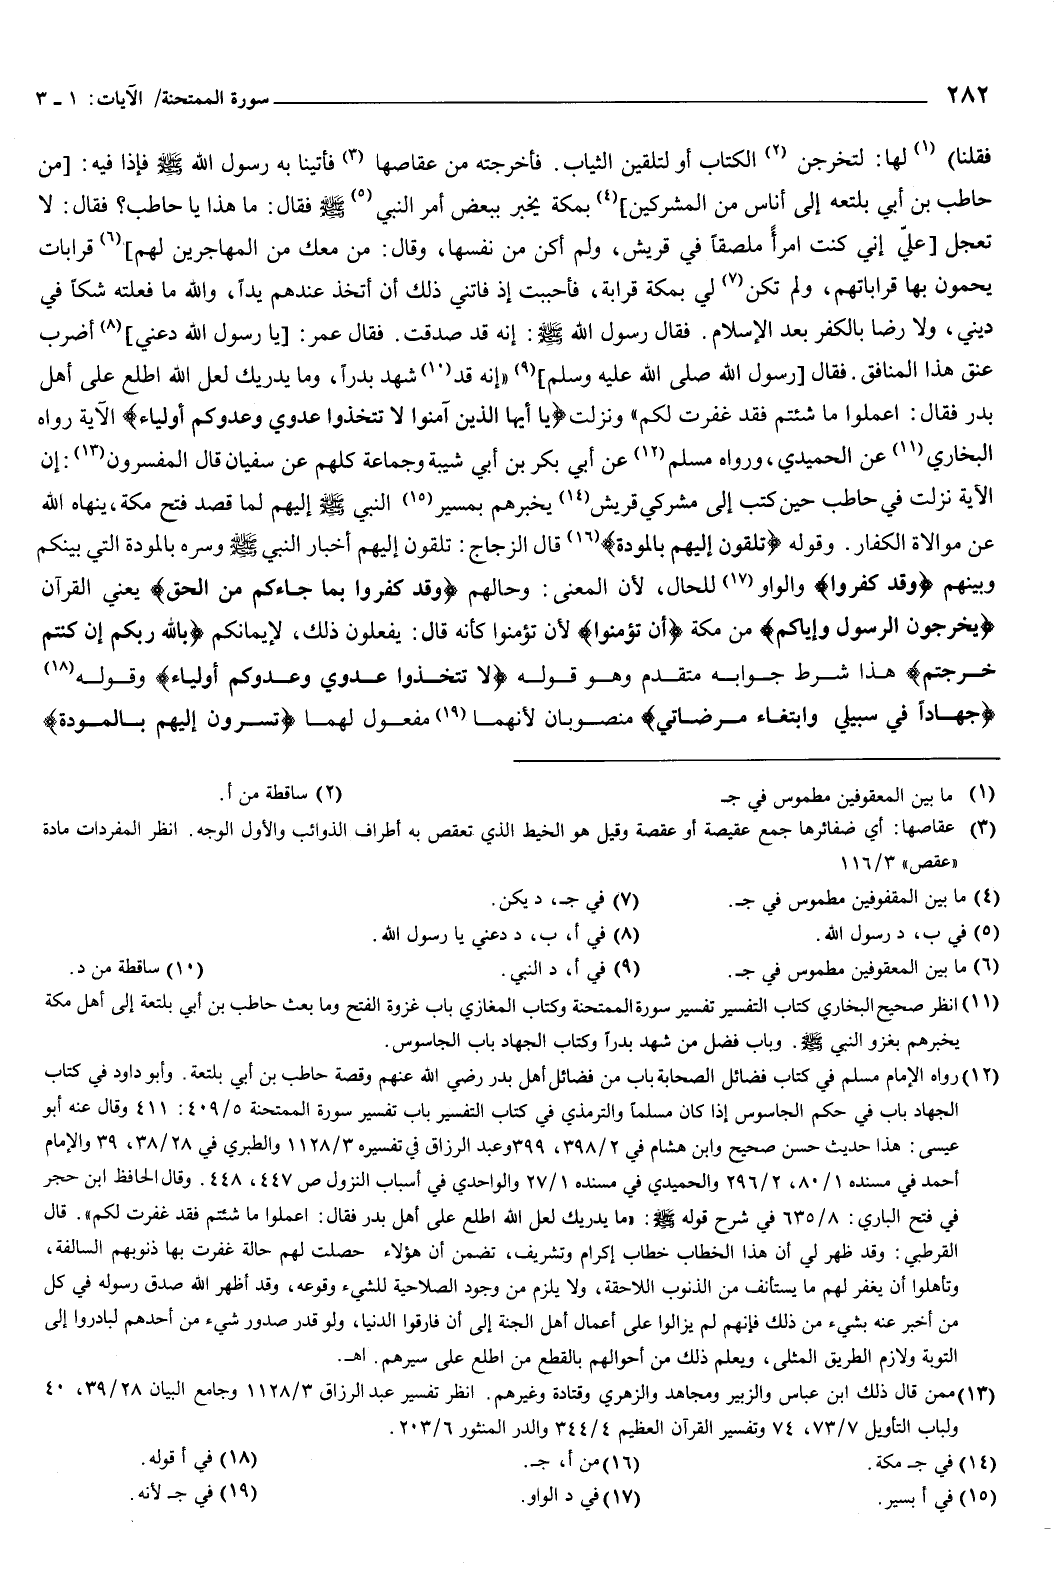 ٢٨٢ سورة الممتحنة/ الآيات: ١ - ٣
فقلنا) (١) لها: لتخرجن (٢) الكتاب أو لتلقين الثياب. فأخرجته من عقاصها (٣) فأتينا به رسول الله ﷺ فإذا فيه: [من
حاطب بن أبي بلتعه إلى أناس من المشركين](٤) بمكة يخبر ببعض أمر النبي (٥) ﷺ فقال: ما هذا يا حاطب؟ فقال: لا
تعجل [عليّ إني كنت امرأً ملصقاً في قريش، ولم أكن من نفسها، وقال: من معك من المهاجرين لهم](٦) قرابات
يحمون بها قراباتهم، ولم تكن(٧) لي بمكة قرابة، فأحببت إذ فاتني ذلك أن أتخذ عندهم يداً، والله ما فعلته شكاً في
ديني، ولا رضا بالكفر بعد الإسلام. فقال رسول الله ﷺ: إنه قد صدقت. فقال عمر: [يا رسول الله دعني](٨) أضرب
عنق هذا المنافق. فقال [رسول الله صلى الله عليه وسلم](٩) «إنه قد(١٠) شهد بدراً، وما يدريك لعل الله اطلع على أهل
بدر فقال: اعملوا ما شئتم فقد غفرت لكم» ونزلت ﴿يا أيها الذين آمنوا لا تتخذوا عدوي وعدوكم أولياء﴾ الآية رواه
البخاري(١١) عن الحميدي، ورواه مسلم(١٢) عن أبي بكر بن أبي شيبة وجماعة كلهم عن سفيان قال المفسرون(١٣): إن
الآية نزلت في حاطب حين كتب إلى مشركي قريش(١٤) يخبرهم بمسير(١٥) النبي ﷺ إليهم لما قصد فتح مكة، ينهاه الله
عن موالاة الكفار. وقوله ﴿تلقون إليهم بالمودة﴾(١٦) قال الزجاج: تلقون إليهم أخبار النبي ﷺ وسره بالمودة التي بينكم
وبينهم ﴿وقد كفروا﴾ والواو (١٧) للحال، لأن المعنى: وحالهم ﴿وقد كفروا بما جاءكم من الحق﴾ يعني القرآن
﴿يخرجون الرسول وإياكم﴾ من مكة ﴿أن تؤمنوا﴾ لأن تؤمنوا كأنه قال: يفعلون ذلك، لإيمانكم ﴿بالله ربكم إن كنتم
خرجتم﴾ هذا شرط جوابه متقدم وهو قوله ﴿لا تتخذوا عدوي وعدوكم أولياء﴾ وقوله(١٨)
﴿جهاداً في سبيلي وابتغاء مرضاتي﴾ منصوبان لأنهما (١٩) مفعول لهما ﴿تسرون إليهم بالمودة﴾
(١) ما بين المعقوفين مطموس في جـ (٢) ساقطة من أ.
(٣) عقاصها: أي ضفائرها جمع عقيصة أو عقصة وقيل هو الخيط الذي تعقص به أطراف الذوائب والأول الوجه. انظر المفردات مادة
«عقص» ١١٦/٣
(٤) ما بين المقفوفين مطموس في جـ. (٧) في جـ، د يكن.
(٥) في ب، د رسول الله. (٨) في أ، ب، د دعني يا رسول الله.
(٦) ما بين المعقوفين مطموس في جـ. (٩) في أ، د النبي. (١٠) ساقطة من د.
(١١) انظر صحيح البخاري كتاب التفسير تفسير سورة الممتحنة وكتاب المغازي باب غزوة الفتح وما بعث حاطب بن أبي بلتعة إلى أهل مكة
يخبرهم بغزو النبي ﷺ. وباب فضل من شهد بدراً وكتاب الجهاد باب الجاسوس.
(١٢) رواه الإمام مسلم في كتاب فضائل الصحابة باب من فضائل أهل بدر رضي الله عنهم وقصة حاطب بن أبي بلتعة. وأبو داود في كتاب
الجهاد باب في حكم الجاسوس إذا كان مسلماً والترمذي في كتاب التفسير باب تفسير سورة الممتحنة ٤٠٩/٥: ٤١١ وقال عنه أبو
عيسى: هذا حديث حسن صحيح وابن هشام في ٣٩٨/٢، ٣٩٩ وعبد الرزاق في تفسيره ١١٢٨/٣ والطبري في ٣٨/٢٨، ٣٩ والإمام
أحمد في مسنده ٨٠/١، ٢٩٦/٢ والحميدي في مسنده ٢٧/١ والواحدي في أسباب النزول ص ٤٤٧، ٤٤٨. وقال الحافظ ابن حجر
في فتح الباري: ٦٣٥/٨ في شرح قوله ﷺ: «ما يدريك لعل الله اطلع على أهل بدر فقال: اعملوا ما شئتم فقد غفرت لكم». قال
القرطبي: وقد ظهر لي أن هذا الخطاب خطاب إكرام وتشريف، تضمن أن هؤلاء حصلت لهم حالة غفرت بها ذنوبهم السالفة،
وتأهلوا أن يغفر لهم ما يستأنف من الذنوب اللاحقة، ولا يلزم من وجود الصلاحية للشيء وقوعه، وقد أظهر الله صدق رسوله في كل
من أخبر عنه بشيء من ذلك فإنهم لم يزالوا على أعمال أهل الجنة إلى أن فارقوا الدنيا، ولو قدر صدور شيء من أحدهم لبادروا إلى
التوبة ولازم الطريق المثلى، ويعلم ذلك من أحوالهم بالقطع من اطلع على سيرهم. اهـ.
(١٣) ممن قال ذلك ابن عباس والزبير ومجاهد والزهري وقتادة وغيرهم. انظر تفسير عبد الرزاق ١١٢٨/٣ وجامع البيان ٣٩/٢٨، ٤٠
ولباب التأويل ٧٣/٧، ٧٤ وتفسير القرآن العظيم ٣٤٤/٤ والدر المنثور ٢٠٣/٦.
(١٤) في جـ مكة. (١٦) من أ، جـ. (١٨) في أ قوله.
(١٥) في أ بسير. (١٧) في د الواو. (١٩) في جـ لأنه.